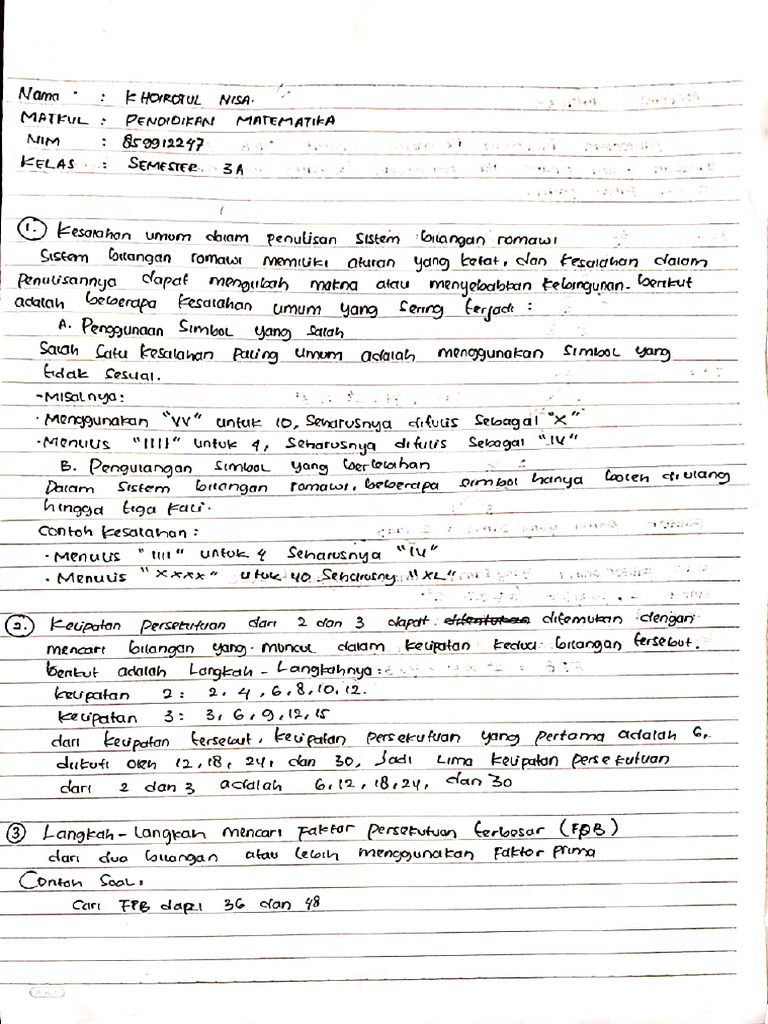 Nama : KHOIROTUL NISA.
MATKUL : PENDIDIKAN MATEMATIKA
NIM : 859912247
KELAS : SEMESTER 3A
1. Kesalahan umum dalam penulisan sistem bilangan romawi
Sistem bilangan romawi memiliki aturan yang ketat, dan kesalahan dalam
penulisannya dapat mengubah makna atau menyebabkan kebingunan. berikut
adalah beberapa kesalahan umum yang sering terjadi :
A. Penggunaan simbol yang salah
Salah satu kesalahan paling umum adalah menggunakan simbol yang
tidak sesuai.
-Misalnya:
· Menggunakan "VV" untuk 10, seharusnya ditulis sebagai "X"
· Menulis "IIII" untuk 4, seharusnya ditulis sebagai "IV"
B. Pengulangan simbol yang berlebihan
Dalam sistem bilangan romawi, beberapa simbol hanya boleh diulang
hingga tiga kali.
Contoh kesalahan :
· Menulis "IIII" untuk 4 seharusnya "IV"
· Menulis "XXXX" utuk 40 seharusny "XL"
2. Kelipatan persekutuan dari 2 dan 3 dapat ditentukan ditemukan dengan
mencari bilangan yang muncul dalam kelipatan kedua bilangan tersebut.
berikut adalah Langkah-Langkahnya:
kelipatan 2: 2, 4, 6, 8, 10, 12.
kelipatan 3: 3, 6, 9, 12, 15
dari kelipatan tersebut, kelipatan persekutuan yang pertama adalah 6,
diikuti oleh 12, 18, 24, dan 30, Jadi lima kelipatan persekutuan
dari 2 dan 3 adalah 6, 12, 18, 24, dan 30
3 Langkah-Langkah mencari Faktor persekutuan terbesar (FPB)
dari dua bilangan atau lebih menggunakan Faktor prima
Contoh Soal:
Cari FPB dari 36 dan 48